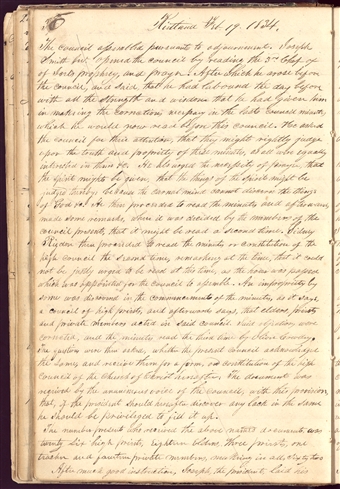 36
Kirtland Feb 19. 1834.
The council assembled pursuant to adjournment. Joseph
Smith Jur. opened the council by reading the 3rd Chap of
of Joel's prophecy, and prayer. After which he arose before
the council, and said, that he had laboured the day before
with all the strength and wisdom that he had given him
in making the corrections necessary in the last council minutes
which he would now read before this council. He asked
the council for their attention, that they might rightly judge
upon the truth and propriety of these minutes, as all were equally
interested in them &c. He also urged the necessity of prayer, that
the Spirit might be given, that the things of the Spirit might be
judged thereby, because the carnal mind cannot discern the things
of God &c. He then proceeded to read the minutes and afterwards
made some remarks, when it was decided by the members of the
council present, that it might be read a second time. Sidney
Rigdon then proceeded to read the minutes or constitution of the
high council the second time, remarking at the time, that it could
not be justly urged to be read at this time, as the hour was passed
which was appointed for the council to assemble. An impropriety by
some was discovered in the commencement of the minutes, as it says
a council of high priests, and afterwards says, that elders, priests
and private members acted in said council. These objections were
corrected, and the minutes read the third time by Oliver Cowdery.
The questions were then asked, whether the present council acknowledged
the same, and receive them for a form, and constitution of the high
council of the Church of Christ hereafter. The document was
received by the unanimous voice of the council, with this provision,
that, if the president should hereafter discover any lack in the same
he should be privileged to fill it up.
The number present who received the above named document was
twenty six high priests, eighteen elders, three priests, one
teacher and fourteen private members, making in all sixty two
After much good instruction, Joseph, the president, laid his